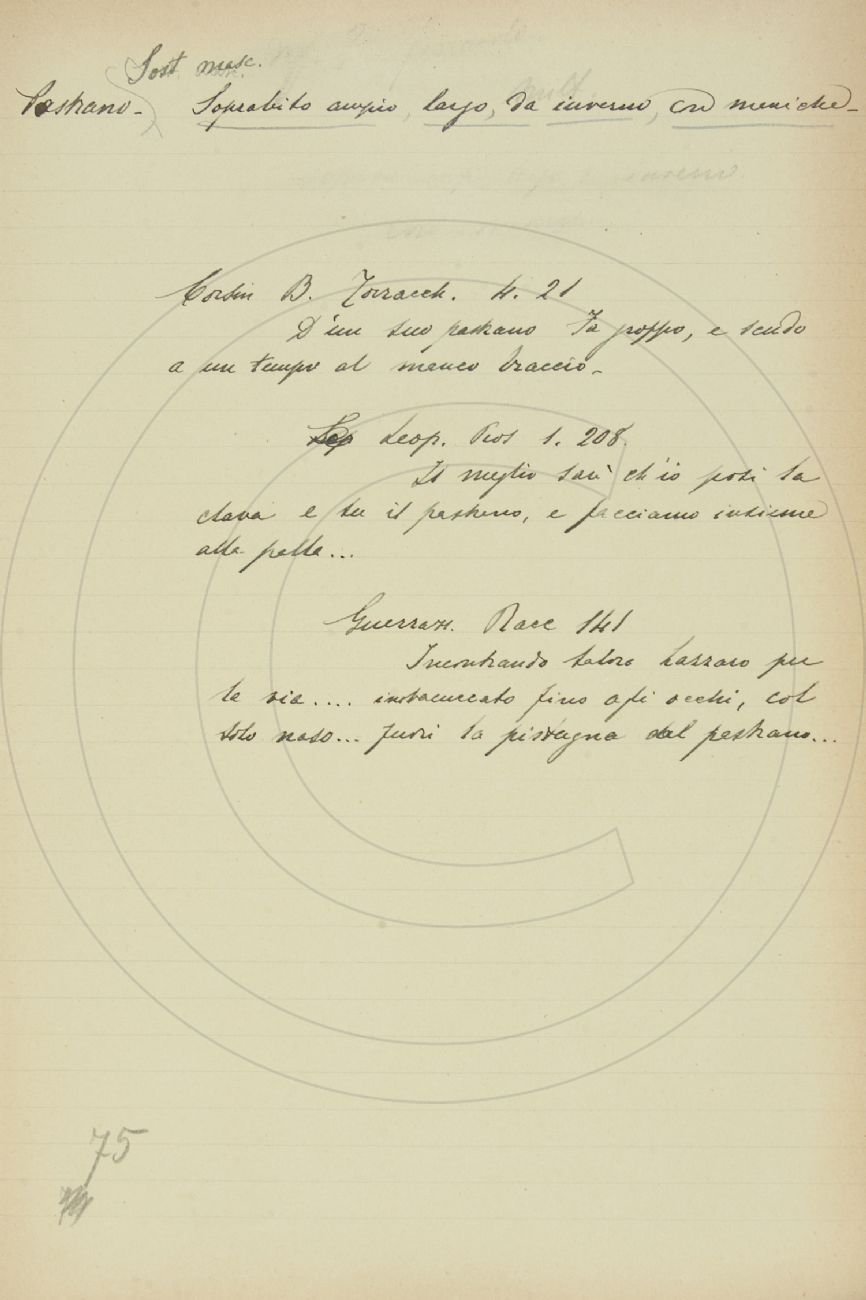 Sost masc.
Pastrano - Soprabito ampio, largo, da inverno, con maniche -
Corsin B. Torracch. 4. 21
D'un suo pastrano fa groppo, e scudo
a un tempo al manco braccio -
Leop. Pros 1. 208.
Il meglio sarà ch'io posi la
clava e tu il pastrano, e facciamo insieme
alla palla...
Guerrazz. Racc 141
Incontrando talora Lazzaro per
la via.... imbacuccato fino agli occhi, col
solo naso... fuori la pistagna del pastrano...
75